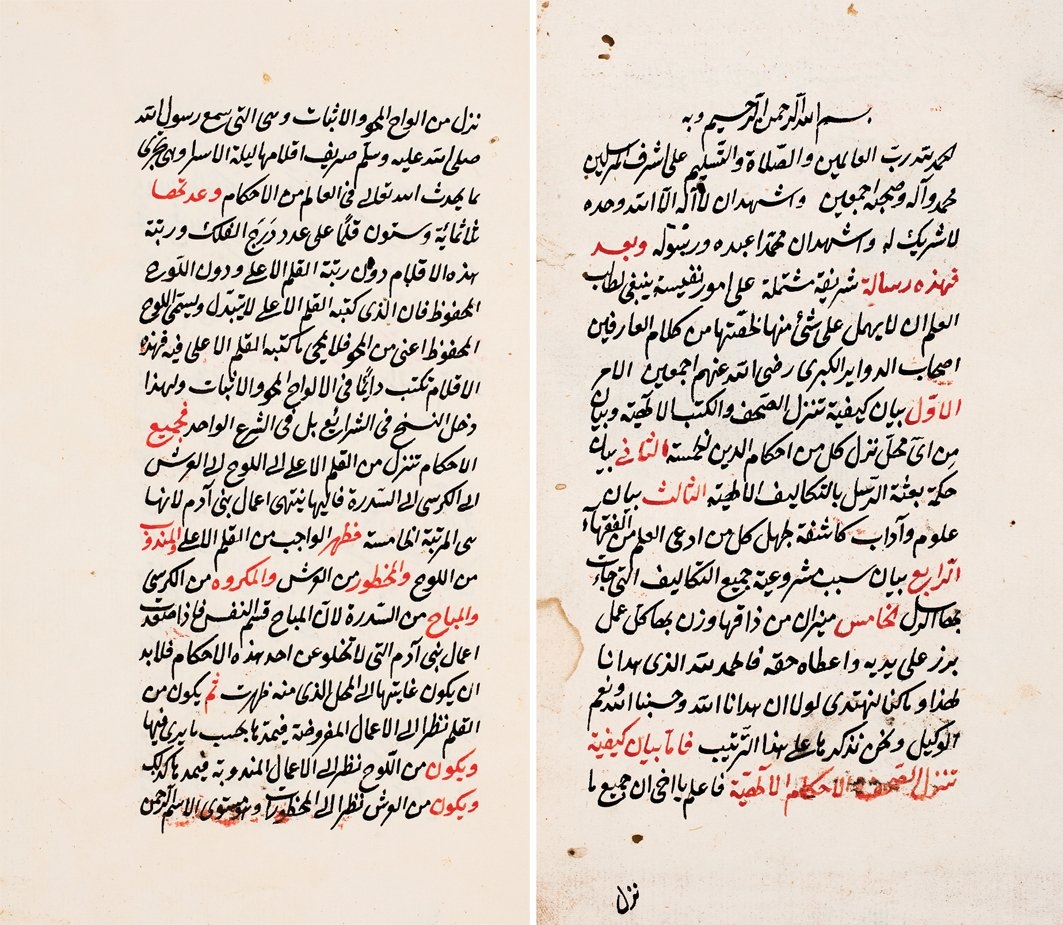 بسم الله الرحمن الرحيم وبه
الحمد لله رب العالمين والصلاة والتسليم على اشرف المرسلين
محمد وآله وصحبه اجمعين واشهد ان لا اله الا الله وحده
لا شريك له واشهد ان محمدا عبده ورسوله وبعد
فهذه رسالة شريفة مشتملة على امور نفيسة ينبغي لطالب
العلم ان لا يهمل على شئ منها لخصتها من كلام العارفين
اصحاب الدواير الكبرى رضى الله عنهم اجمعين الامر
الاول بيان كيفية تنزل الصحف والكتب الالهية وبيان
من اى محل نزل كل من احكام الدين الخمسة الثانى بيان
حكمة بعثة الرسل بالتكاليف الالهية الثالث بيان
علوم وآداب كاشفة لجهل كل من ادعى العلم من الفقهاء
الرابع بيان سبب مشروعية جميع التكاليف التى جاءت
بها الرسل الخامس ميزان من ذاقها وزن بها كل عمل
برز على يديه واعطاه حقه فالحمد لله الذى هدانا
لهذا وما كنا لنهتدى لولا ان هدانا الله وحسبنا الله ونعم
الوكيل ولنحن نذكرها على هذا الترتيب فاما بيان كيفية
تنزل الصحف الاحكام الالهية فاعلم يا اخى ان جميع ما
نزل
نزل من الواح المحو والاثبات وهى التى سمع رسول الله
صلى الله عليه وسلم صريف اقلامها ليلة الاسرا وهى تجرى
بما يحدث الله تعالى فى العالم من الاحكام وعدتها
ثلاثمائة وستون قلما على عدد درج الفلك ورتبة
هذه الاقلام دون رتبة القلم الاعلى ودون اللوح
المحفوظ فان الذى كتبه القلم الاعلى لا يتبدل ويسمى اللوح
المحفوظ اعنى من المحو فلا يمحى ما كتبه القلم الاعلى فيه فهذه
الاقلام تكتب دائما فى الالواح المحو والاثبات ولهذا
دخل النسخ فى الشرايع بل فى الشرع الواحد فجميع
الاحكام تتنزل من القلم الاعلى الى اللوح الى العرش
الى الكرسى الى السدرة فاليها ينتهى اعمال بنى آدم لانها
هى المرتبة الخامسة فظهر الواجب من القلم الاعلى والمندوب
من اللوح والمحظور من العرش والمكروه من الكرسى
والمباح من السدرة لان المباح قسم النفس فاذا صعدت
اعمال بنى آدم التى لا تخلو عن احد هذه الاحكام فلا بد
ان يكون غايتها الى المحل الذى منه ظهرت ثم يكون من
القلم نظر الى الاعمال المفروضة فيمدها بحسب ما يرى فيها
ويكون من اللوح نظر الى الاعمال المندوبة فيمدها كذلك
ويكون من العرش نظر الى المحظورات وهو مستوى الاسم الرحمن